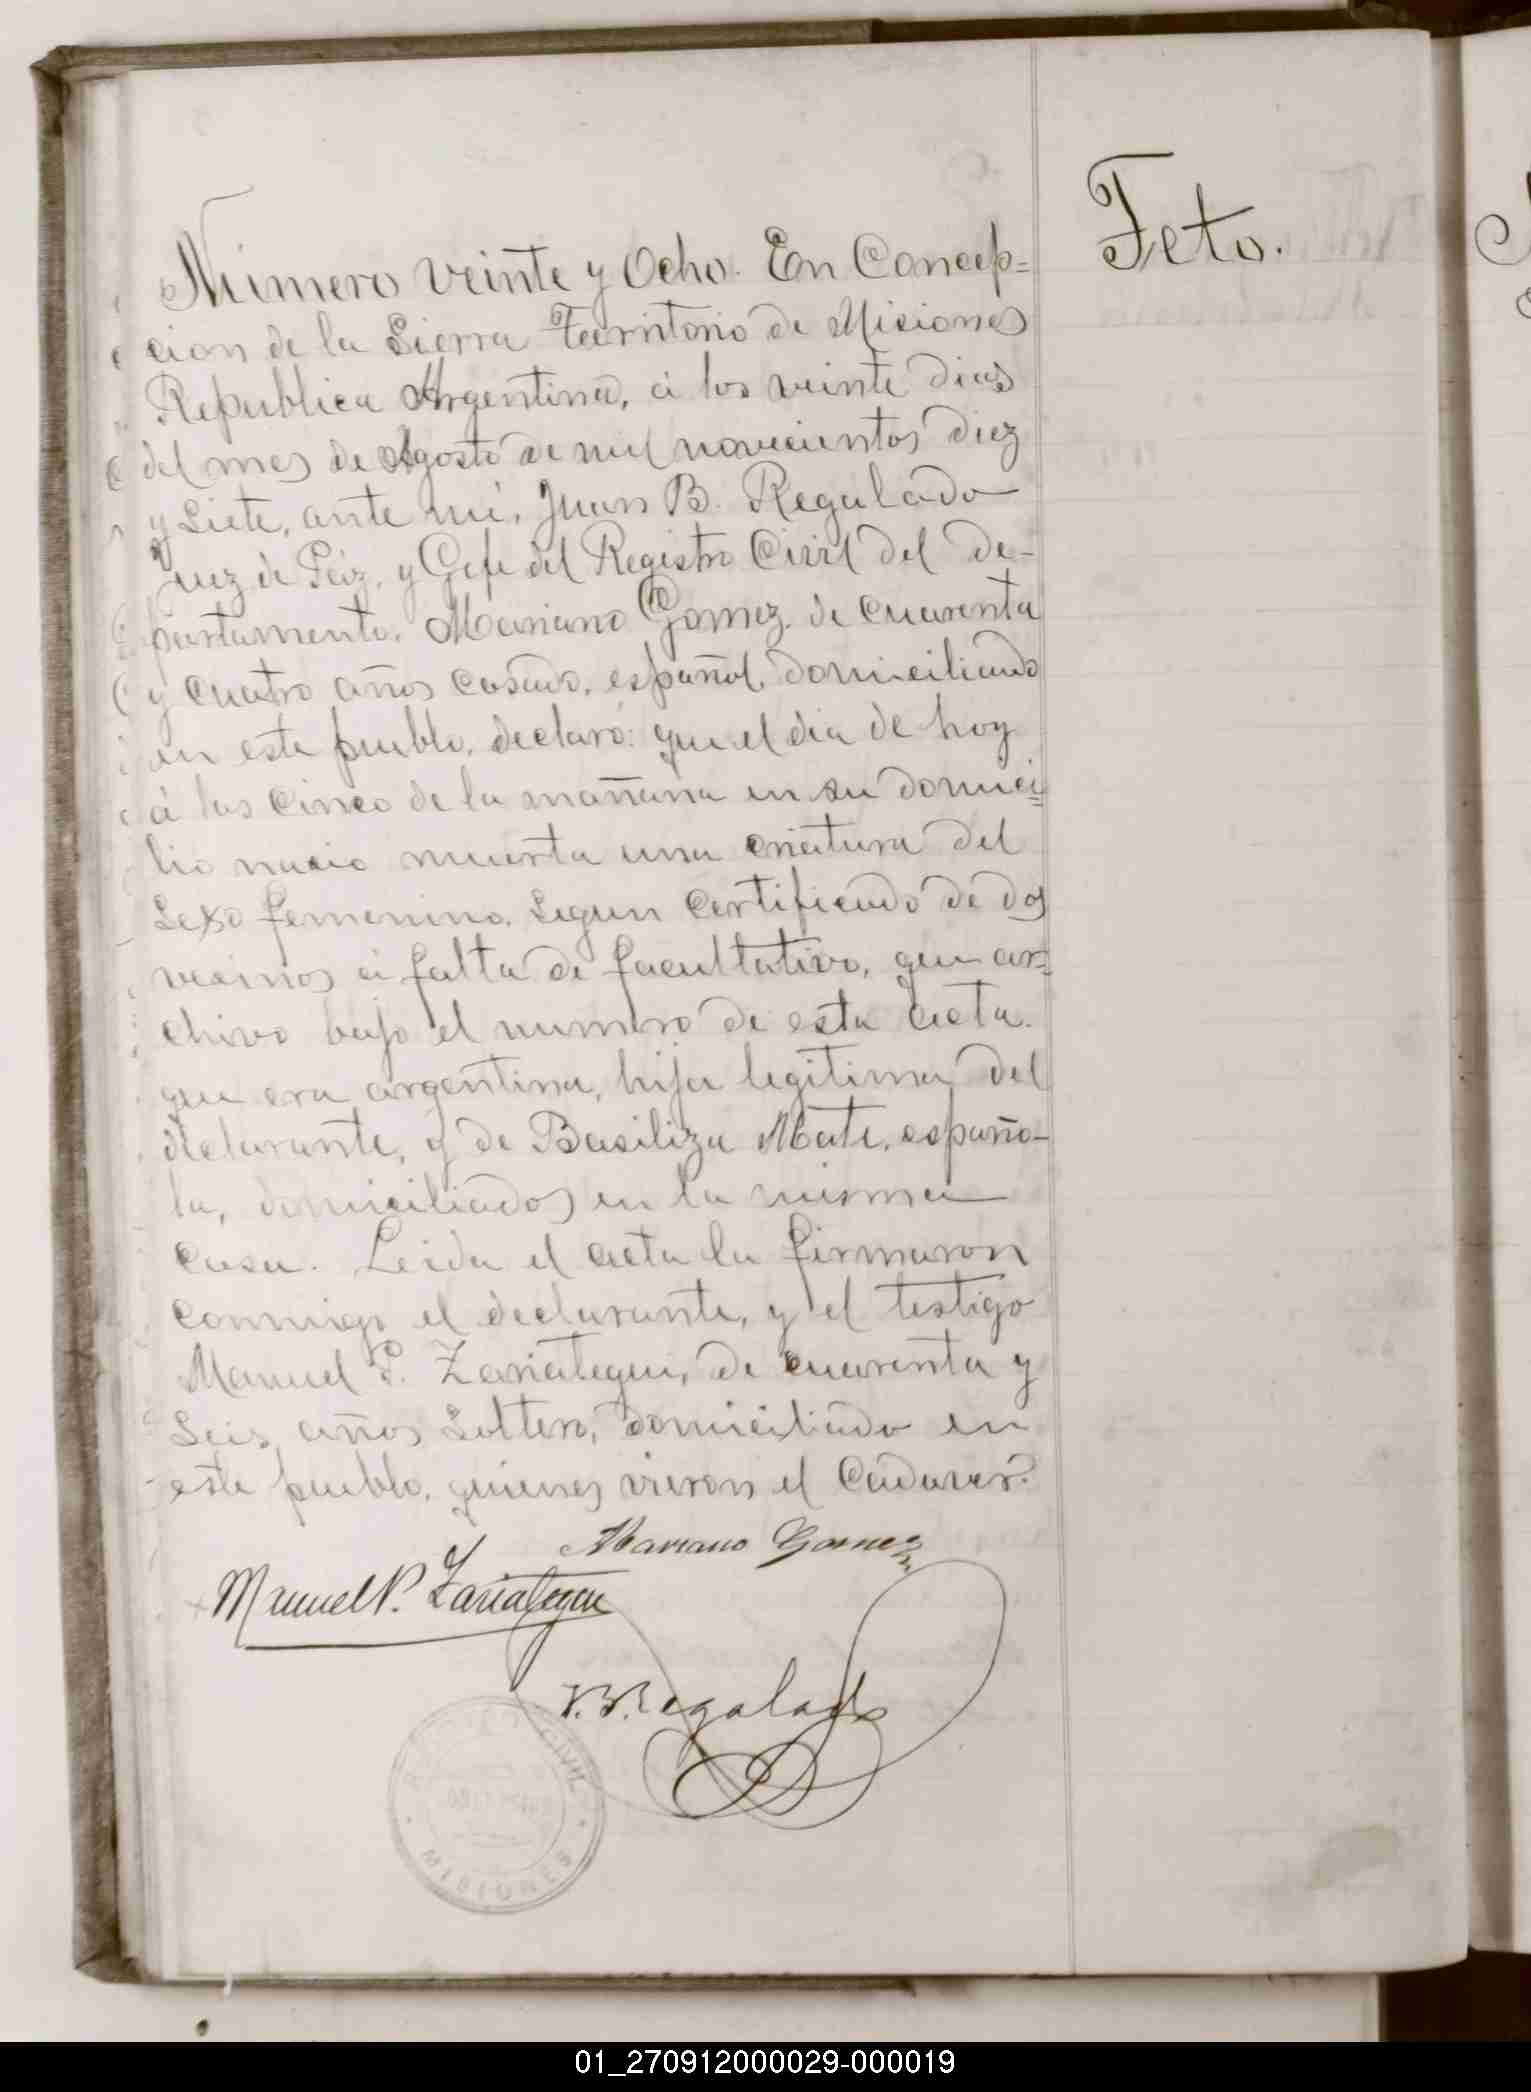 Feto.
Número veinte y Ocho. En Concep=
cion de la Sierra Territorio de Misiones
Republica Argentina, á los veinte dias
del mes de Agosto de mil novecientos diez
y Siete, ante mi, Juan B. Regalado
Juez de Páz, y Gefe del Registro Civil del de-
partamento. Mariano Gomez de cuarenta
y cuatro años casado, español, domiciliado
en este pueblo, declaró: que el dia de hoy
á las cinco de la mañana en su domici=
lio nacio muerta una criatura del
Sexo femenino. Segun certificado de dos
vecinos á falta de facultativo, que ar=
chivo bajo el numero de esta acta.
que era argentina, hija legitima del
declarante, y de Basiliza Mate, españo-
la, domiciliados en la misma
casa. Leida el acta la firmaron
conmigo el declarante, y el testigo
Manuel P. Zariategui, de cuarenta y
Seis años Soltero, domiciliado en
este pueblo, quienes vieron el Cadaver.
Mariano Gomez
Manuel P. Zariategui
J.B. Regalado
CIVIL
MISIONES
01_270912000029-000019